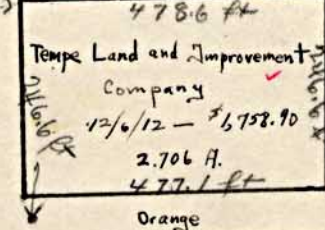 478.6 ft
Tempe Land and Improvement
Company
12/6/12 — $1,758.90
2.706 A.
477.1 ft
246.6 ft
246.6 ft
Orange